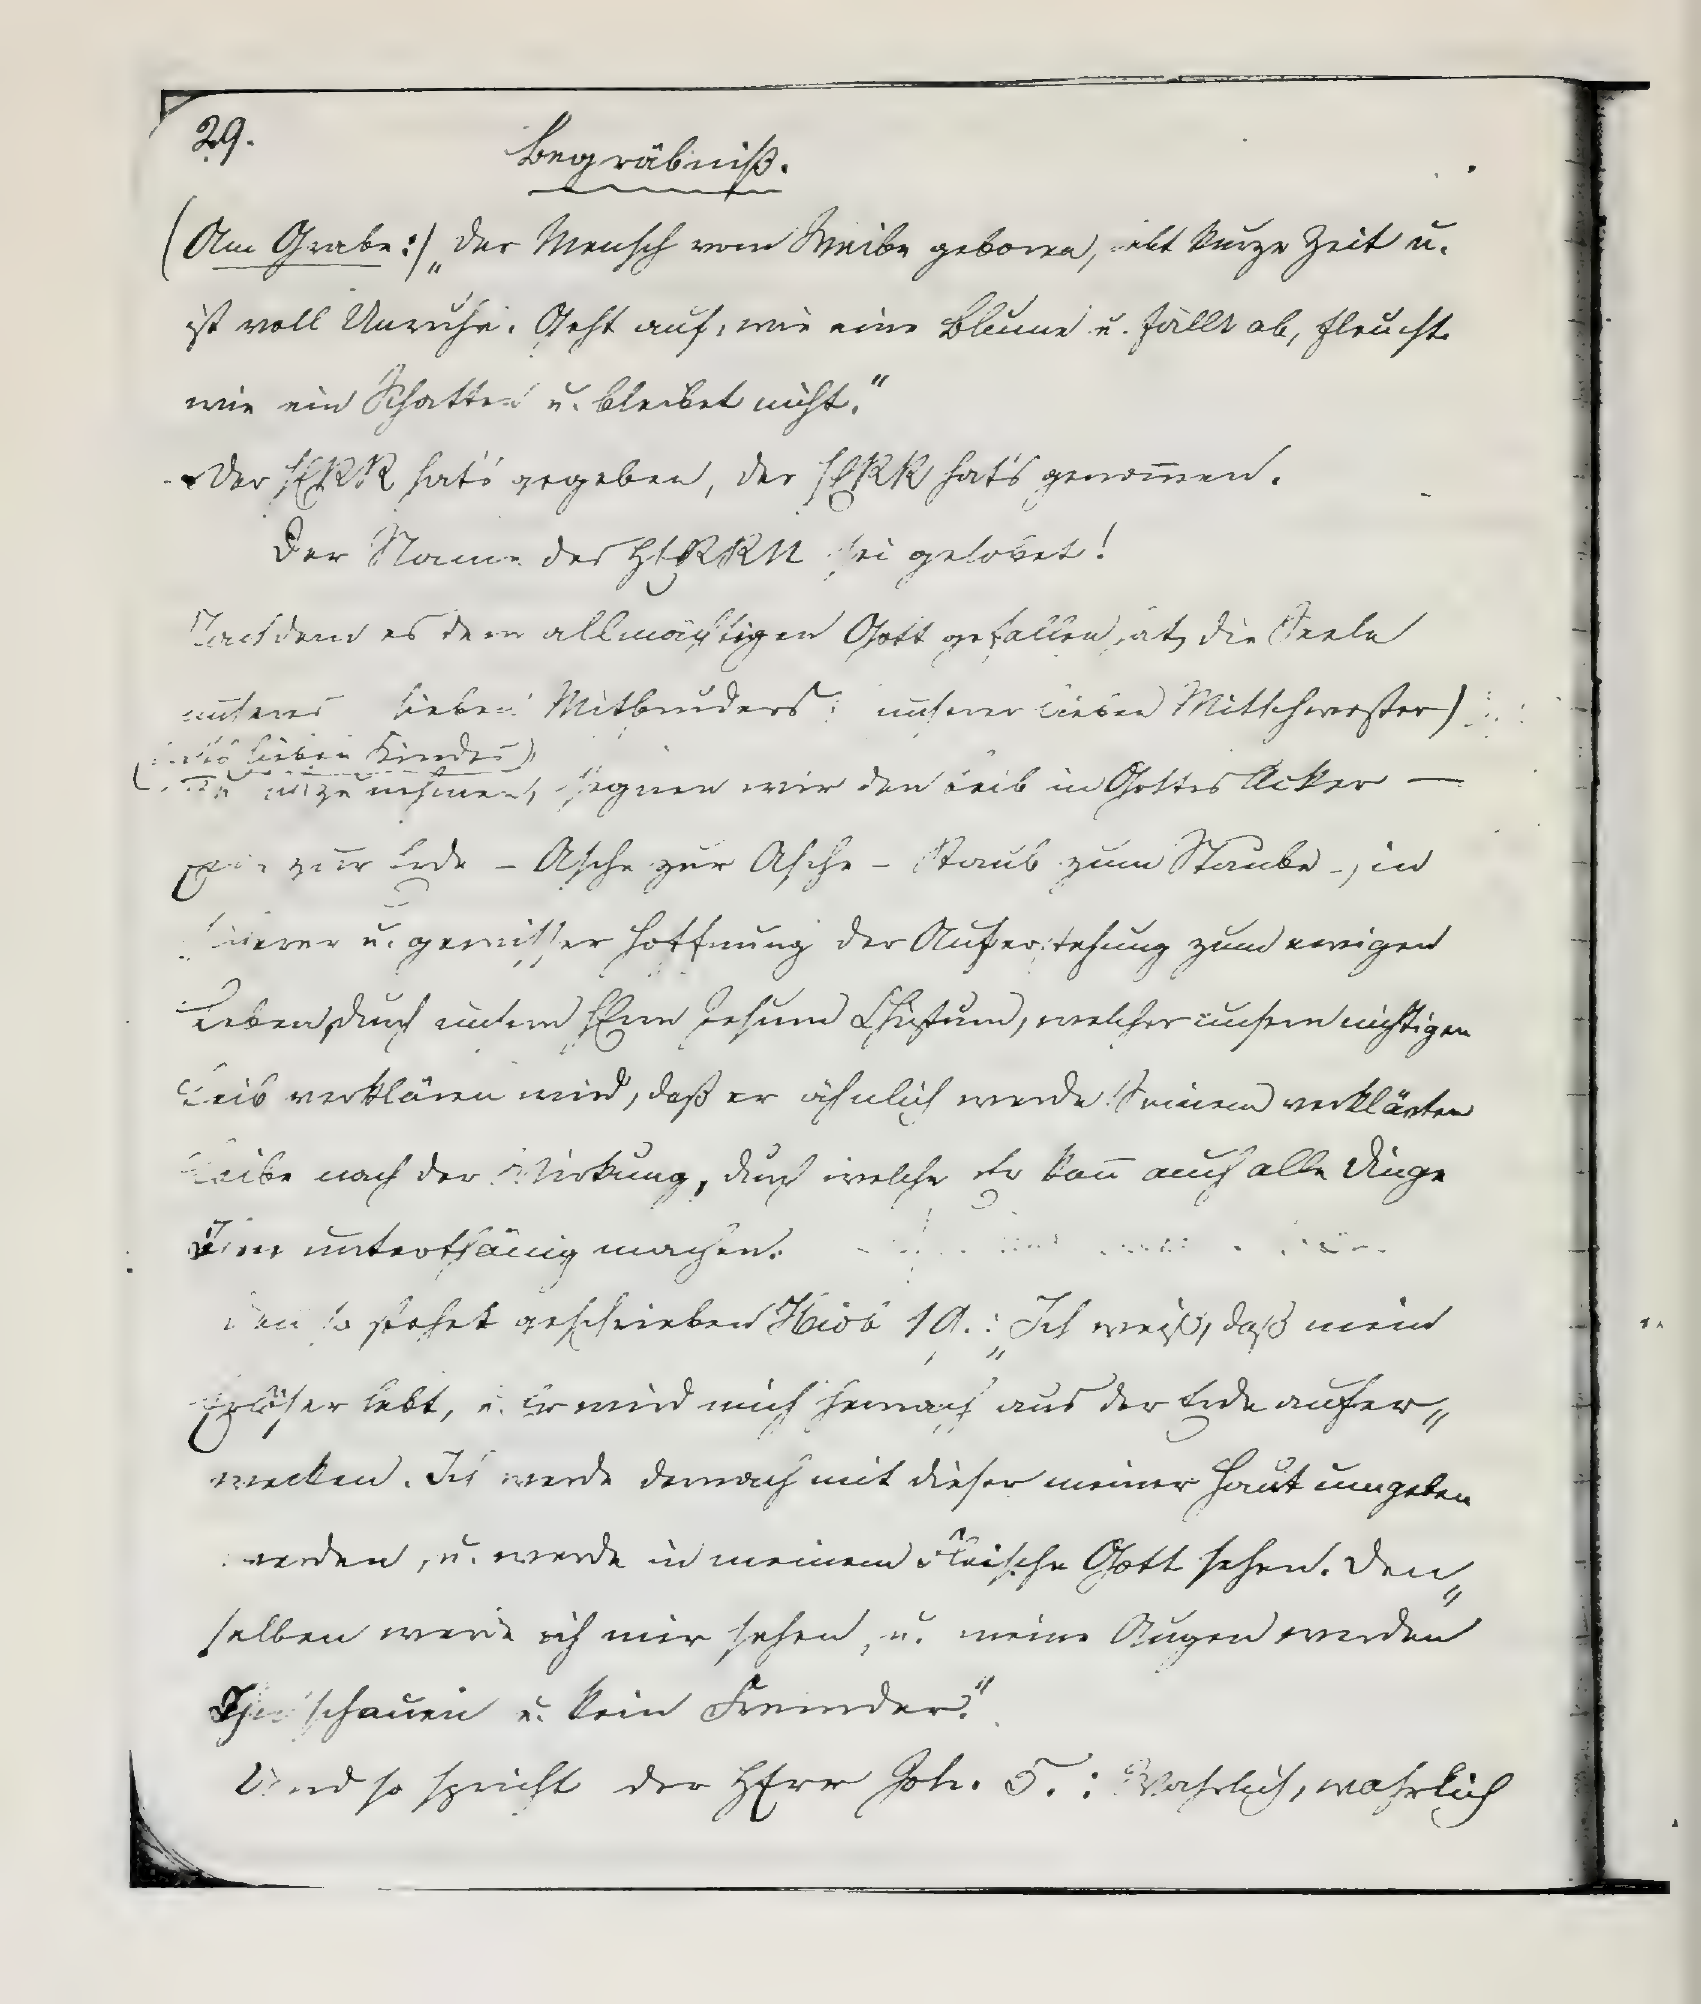 29.
Begräbniß.
(Am Grabe:) „Der Mensch vom Weibe geboren, lebt kurze Zeit u.
ist voll Unruhe. Geht auf, wie eine Blume u. fällt ab, fleucht
wie ein Schatten u. bleibet nicht.“
Der HERR hat's gegeben, der HERR hat's genom̅en.
Der Name des HERRN sei gelobet!
Nachdem es dem allmächtigen Gott gefallen hat, die Seele
unseres lieben Mitbruders (unserer lieben Mitschwester)
(lieben Kindes)
zu nehmen, segnen wir den Leib in Gottes Acker —
Erde zur Erde – Asche zur Asche – Staub zum Staube –, in
sicherer u. gewisser Hoffnung der Auferstehung zum ewigen
Leben, durch unsern HErrn Jesum Christum, welcher unsern nichtigen
Leib verklären wird, daß er ähnlich werde Seinem verklärten
Leibe nach der Wirkung, durch welche Er kan̅ auch alle Dinge
Ihm unterthänig machen.
Den so stehet geschrieben Hiob 19.: „Ich weiß, daß mein
Erlöser lebt, u. Er wird mich hernach aus der Erde aufer„
wecken. Ich werde darnach mit dieser meiner Haut umgeben
werden, u. werde in meinem Fleische Gott sehen. Den„
selben werde ich mir sehen, u. meine Augen werden
Ihn schauen u. kein Fremder.“
Und so spricht der HErr Joh. 5.: Wahrlich, wahrlich